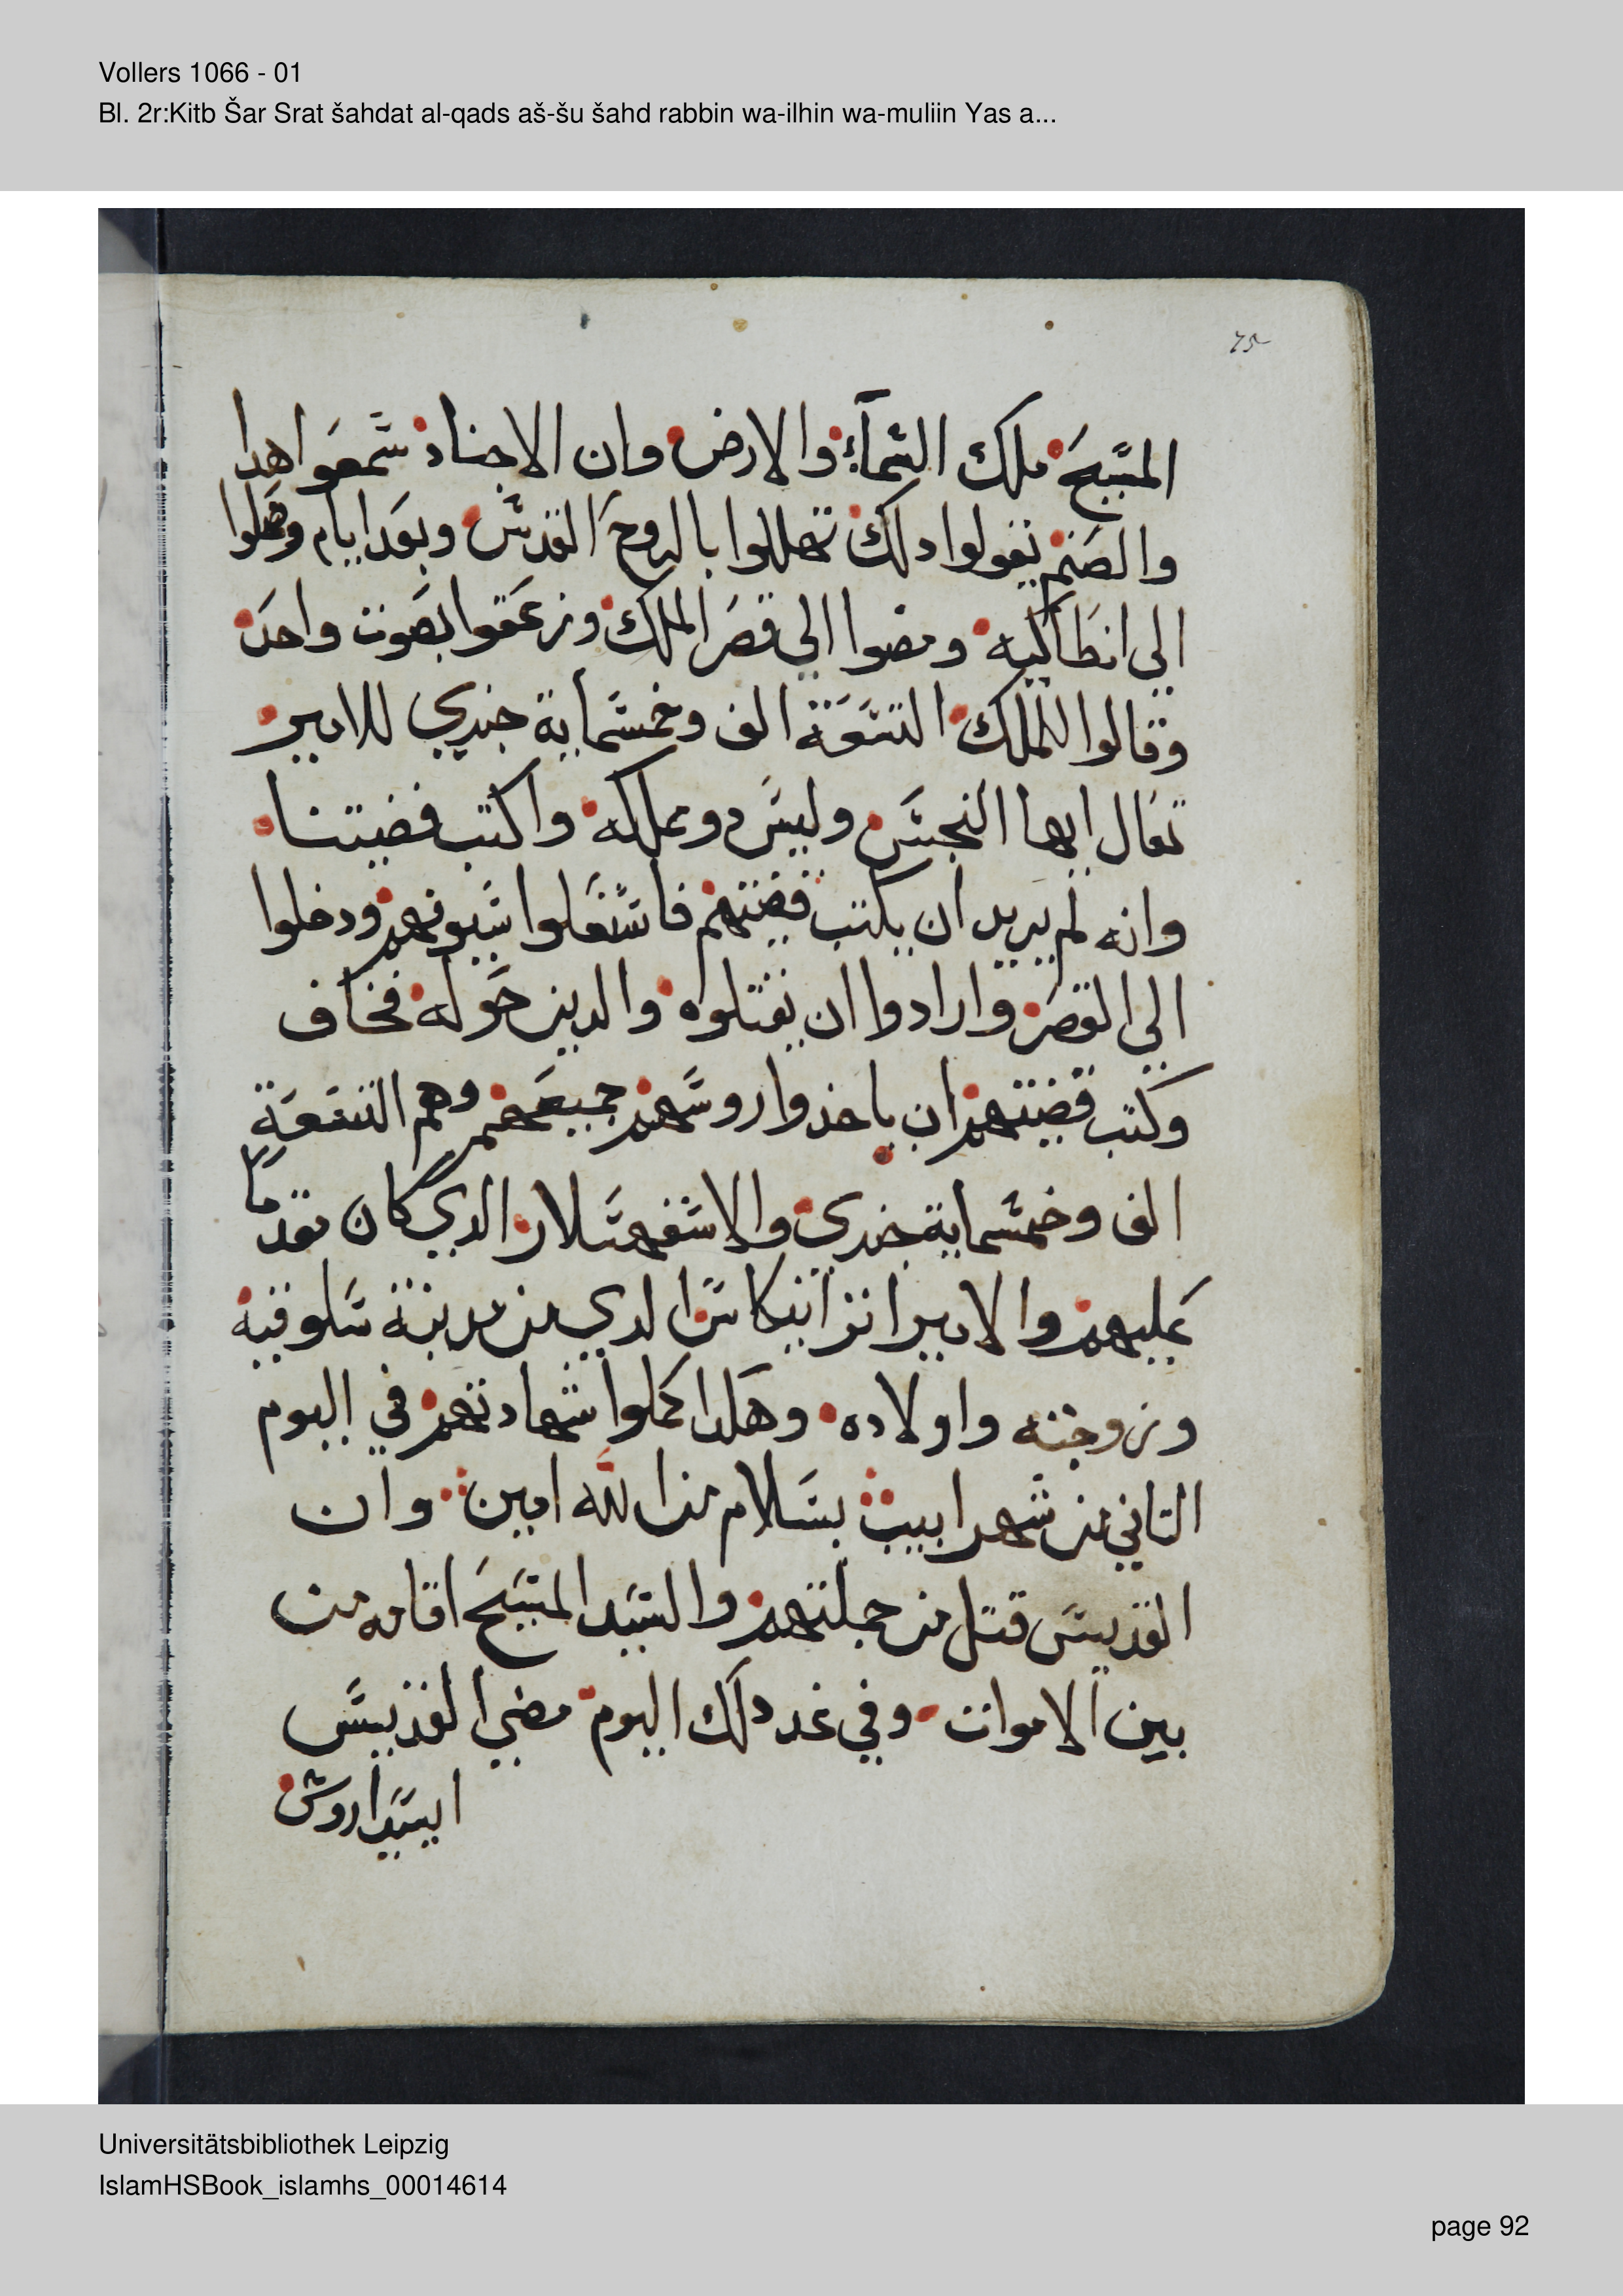 Vollers 1066 - 01
Bl. 2r:Kitb Šar Srat šahdat al-qads aš-šu šahd rabbin wa-ilhin wa-muliin Yas a...
المسيح ملك السمآء والارض وان الاجناد سمعوا هدا
والصنم يقولوا دلك تهللوا بالروح القدس وبعد ايام وصلوا
الي انطاكيه ومضوا الي قصر الملك وزعقوا بصوت واحد
وقالوا للملك التسعة الف وخمسماية جندي للامير
تعال ايها النجس وليس دو مملكه واكتب قضيتنا
وانه لم يريد ان يكتب قضيتهم فاستغلوا سيوفهم ودخلوا
الي القصر وارادوا ان يقتلوه والدين حوله فخاف
وكتب قضيتهم ان ياخذوا روسهم جميعهم وهم التسعة
الف وخمسماية جندي والاسفهسلار الدي كان مقدما
عليهم والامير الدي من مدينة سلوقيه
وزوجته واولاده وهكدا كملوا شهادتهم في اليوم
التاني من شهر ابيب بسلام من الله امين وان
القديس قتل من جملتهم والسيد المسيح اقامه من
بين الاموات وفي غد دلك اليوم مضي القديس
ايسيداروس
Universitätsbibliothek Leipzig
IslamHSBook_islamhs_00014614
page 92